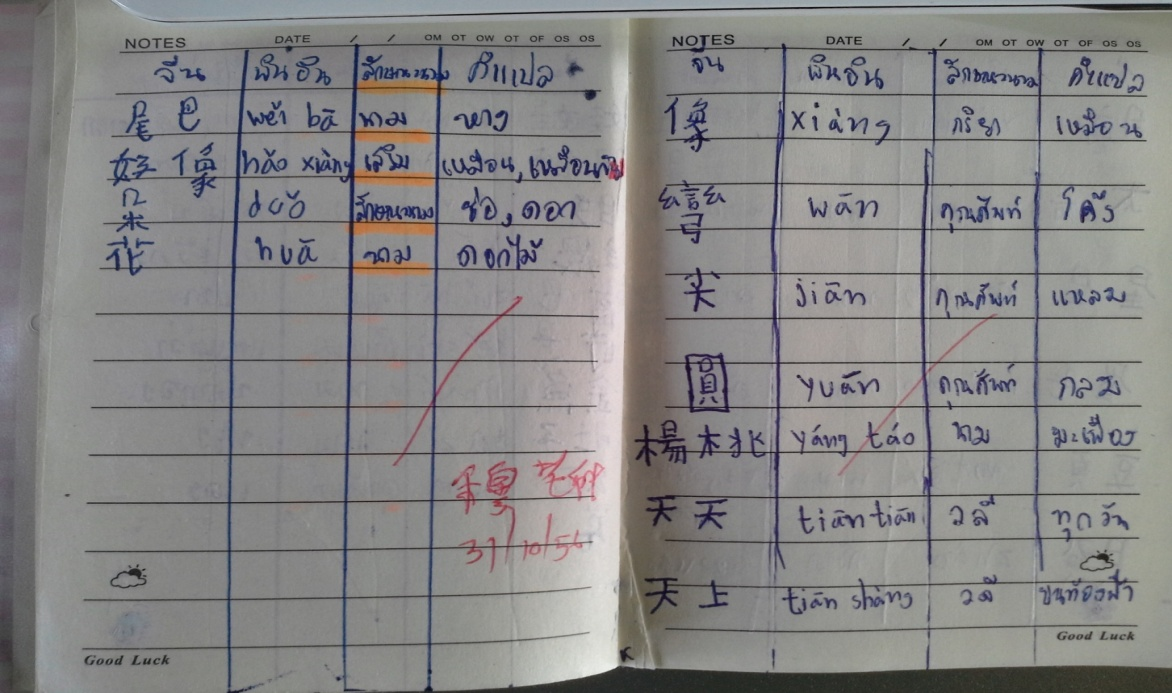 NOTES DATE / / OM OT OW OT OF OS OS
จีน พินอิน ลักษณะนาม คำแปล
尾巴 wěi bā นาม หาง
好像 hǎo xiàng เสริม เหมือน, เหมือนกับ
朵 duǒ ลักษณะนาม ช่อ, ดอก
花 huā นาม ดอกไม้
31/10/56
Good Luck
NOTES DATE / / OM OT OW OT OF OS OS
จีน พินอิน ลักษณะนาม คำแปล
像 xiàng กริยา เหมือน
彎 wān คุณศัพท์ โค้ง
尖 jiān คุณศัพท์ แหลม
圓 yuán คุณศัพท์ กลม
楊桃 yáng táo นาม มะเฟือง
天天 tiān tiān วลี ทุกวัน
天上 tiān shàng วลี บนท้องฟ้า
Good Luck